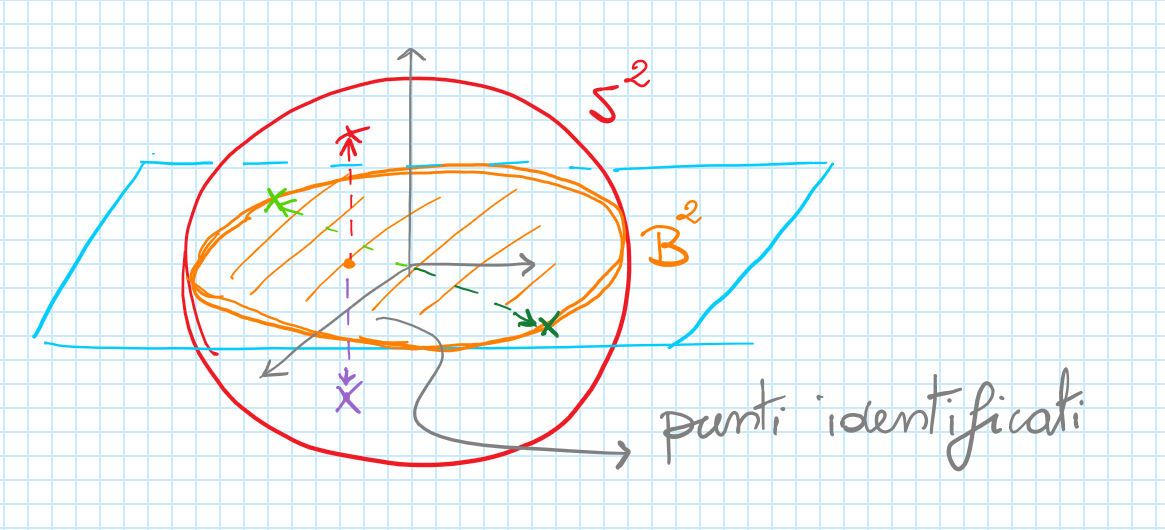 S²
B²
punti identificati